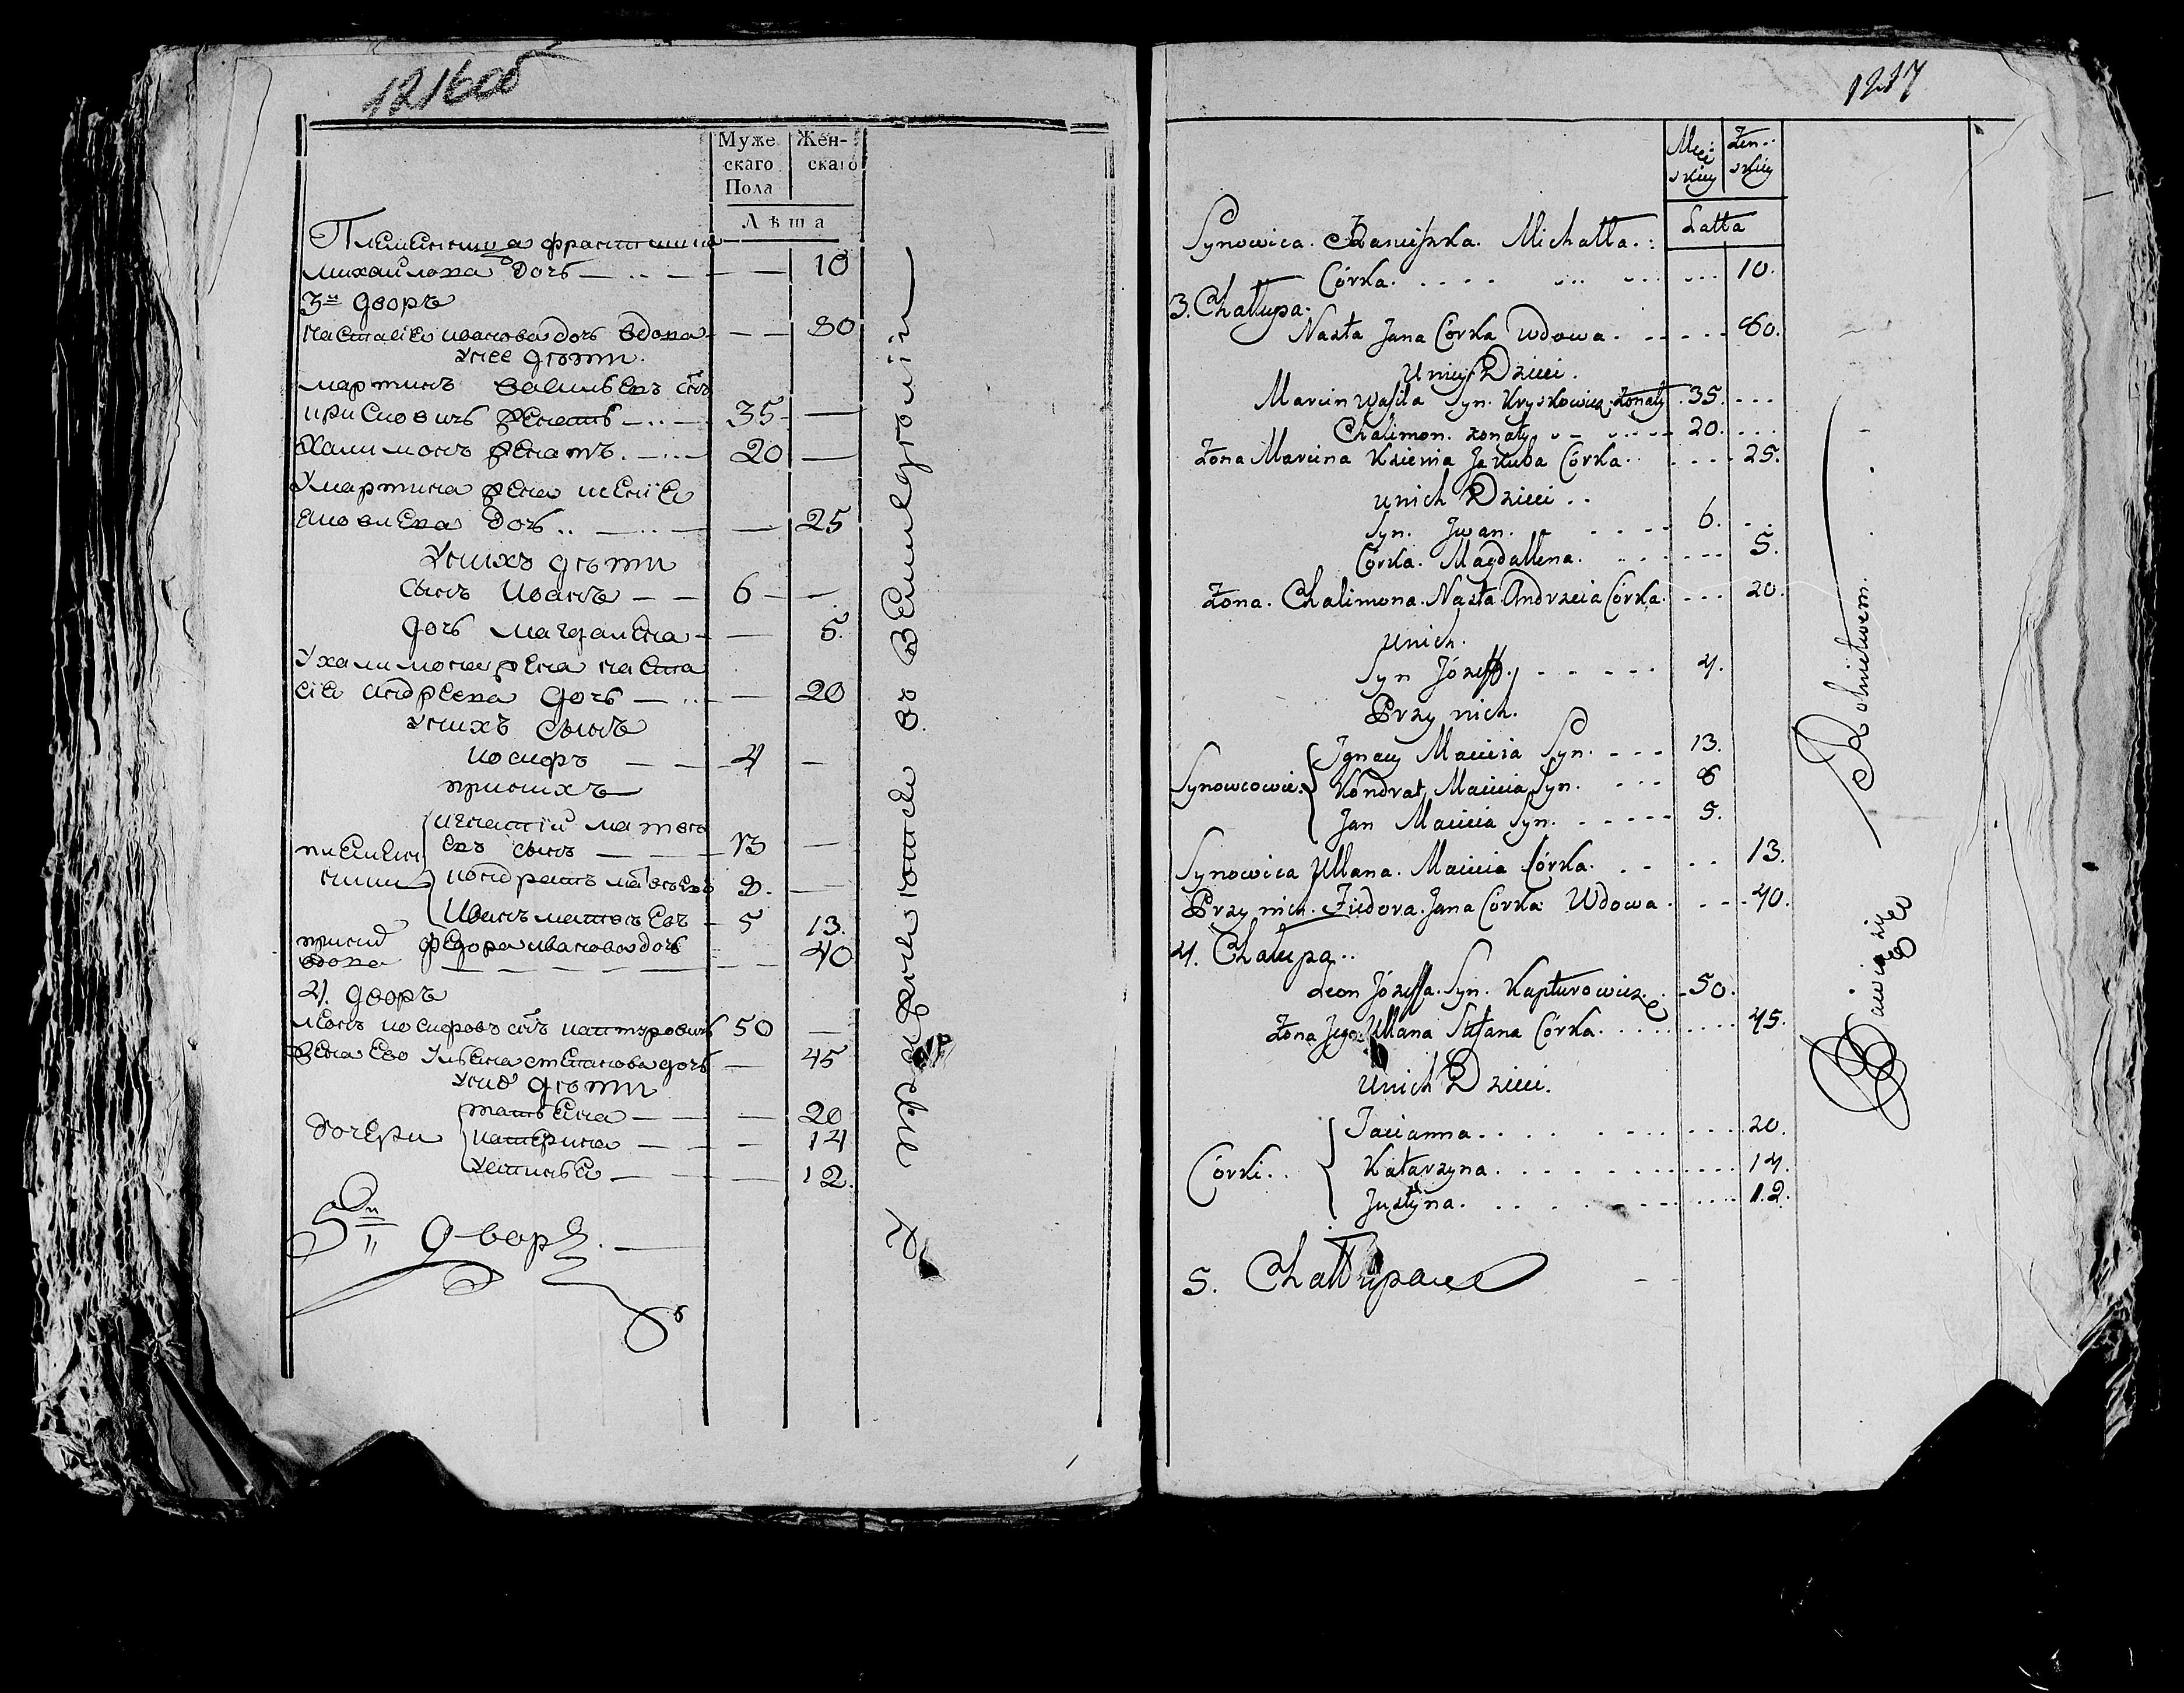 1216об
Муже
скаго
Пола
Жен-
скаго
Лѣта
Племенница францишка
михайлова дочь 10
3й дворъ
настасіа иванова дочь вдова 80
унее дѣти.
мартинъ васильевъ сынъ
крисковичь женатъ 35
халимонъ женатъ. 20
умартина жена ксеніа
яковлева дочь 25
унихъ дѣти
сынъ иванъ 6
дочь магдалена 5.
ухалимона жена наста
сіа андреева дочь 20
унихъ сынъ
иосифъ 4
принихъ
игнатій матве
евъ сынъ 13
племен
ники
кондратъ матвеевъ 8.
иванъ матвеевъ 5 13.
вдова федора иванова дочь 40
4. дворъ
леонъ иосифовъ сынъ каптуровичь 50
жена ево ульяна степанова дочь 45
уних дѣти
дочери
татьяна 20
катерина 14
устинья 12.
5й дворъ.
1217
Męz
skiey
Żen..
skiey
Latta
Synowica. Franciszka. Michałła.:
Córka. 10.
3. Chałłupa.
Nasta Jana Córka Wdowa. 80.
U niey Dzieci.
Marcin Wasila Syn. Kryskowicz. żonaty. 35.
Chalimon. żonaty 20.
Żona Marcina Ksienia Jakuba Córka. 25.
unich Dzieci..
Syn. Jwan. 6.
Córka. Magdallena. 5.
Żona. Chalimona. Nasta. Andrzeia Córka. 20.
unich.
Syn Józeff. 4.
Przy nich.
Synowcowie.
Jgnacy Macieia Syn. 13.
Kondrat Macieia Syn. 8
Jan Macieia Syn. 5.
Synowica Ullana. Macieia Córka. 13.
Przy nich. Fiedora. Jana Córka Wdowa. 40.
4. Chałupa..
Leon Józeffa. Syn. Kapturowicz. 50.
Żona Jego. Ullana Stefana Córka. 45.
Unich Dzieci.
Córki..
Tacianna. 20.
Katarzyna. 14.
Justyna. 12.
5. Chałłupa
Bawią się
Rolnictwem.